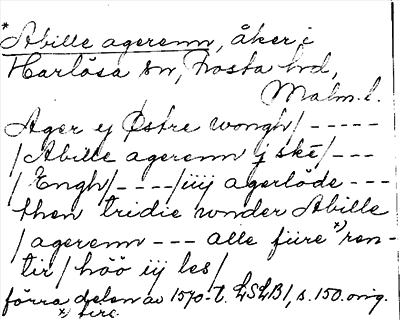 *Abille agerenn, åker i
Harlösa sn, Frosta hd,
Malm. l.
Ager ej Østre wongh/ - - - - -
/Abille agerenn j skē/ - - -
/Engh/ - - - - /iiij agerløde - - -
then tridie wnder Abille
/agerenn - - - alle fiire *) ren-
tir/ höö iij les/
förra delen av 1570-t. LSLB1, s. 150. orig.
*) fire